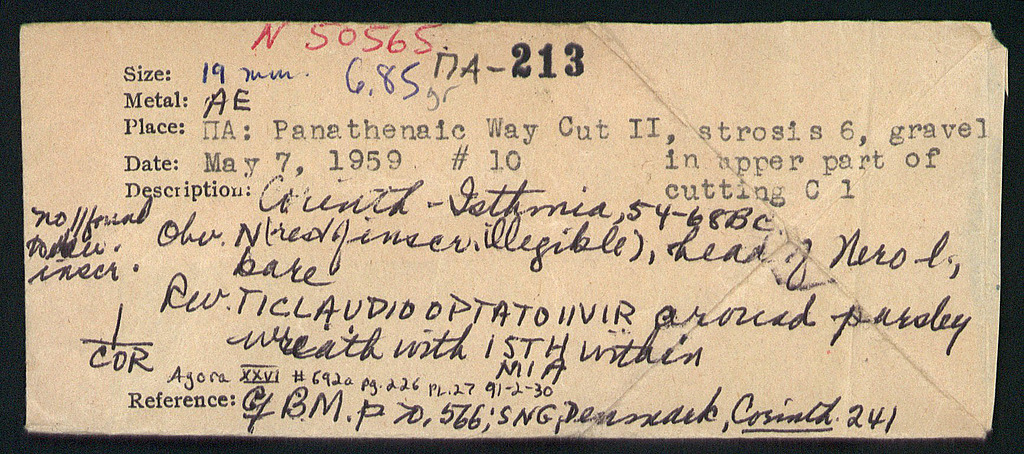 N 50565
ΠA-213
Size: 19 mm. 6.85 gr
Metal: AE
Place: ΠA: Panathenaic Way Cut II, strosis 6, gravel
Date: May 7, 1959 # 10 in upper part of
cutting C 1
Description: Corinth - Isthmia, 54-68BC.
no //
inscr.
Obv. N(rest of inscr. illegible), head of Nero l.,
bare
Rev. TICLAUDIOOPTATOIIVIR around parsley
wreath with ISTH within
MIA
COR
Agora XXVI #692a pg. 226 PL. 27 91-2-30
Reference: Cf BM. p 70, 566; SNG, Denmark, Corinth. 241